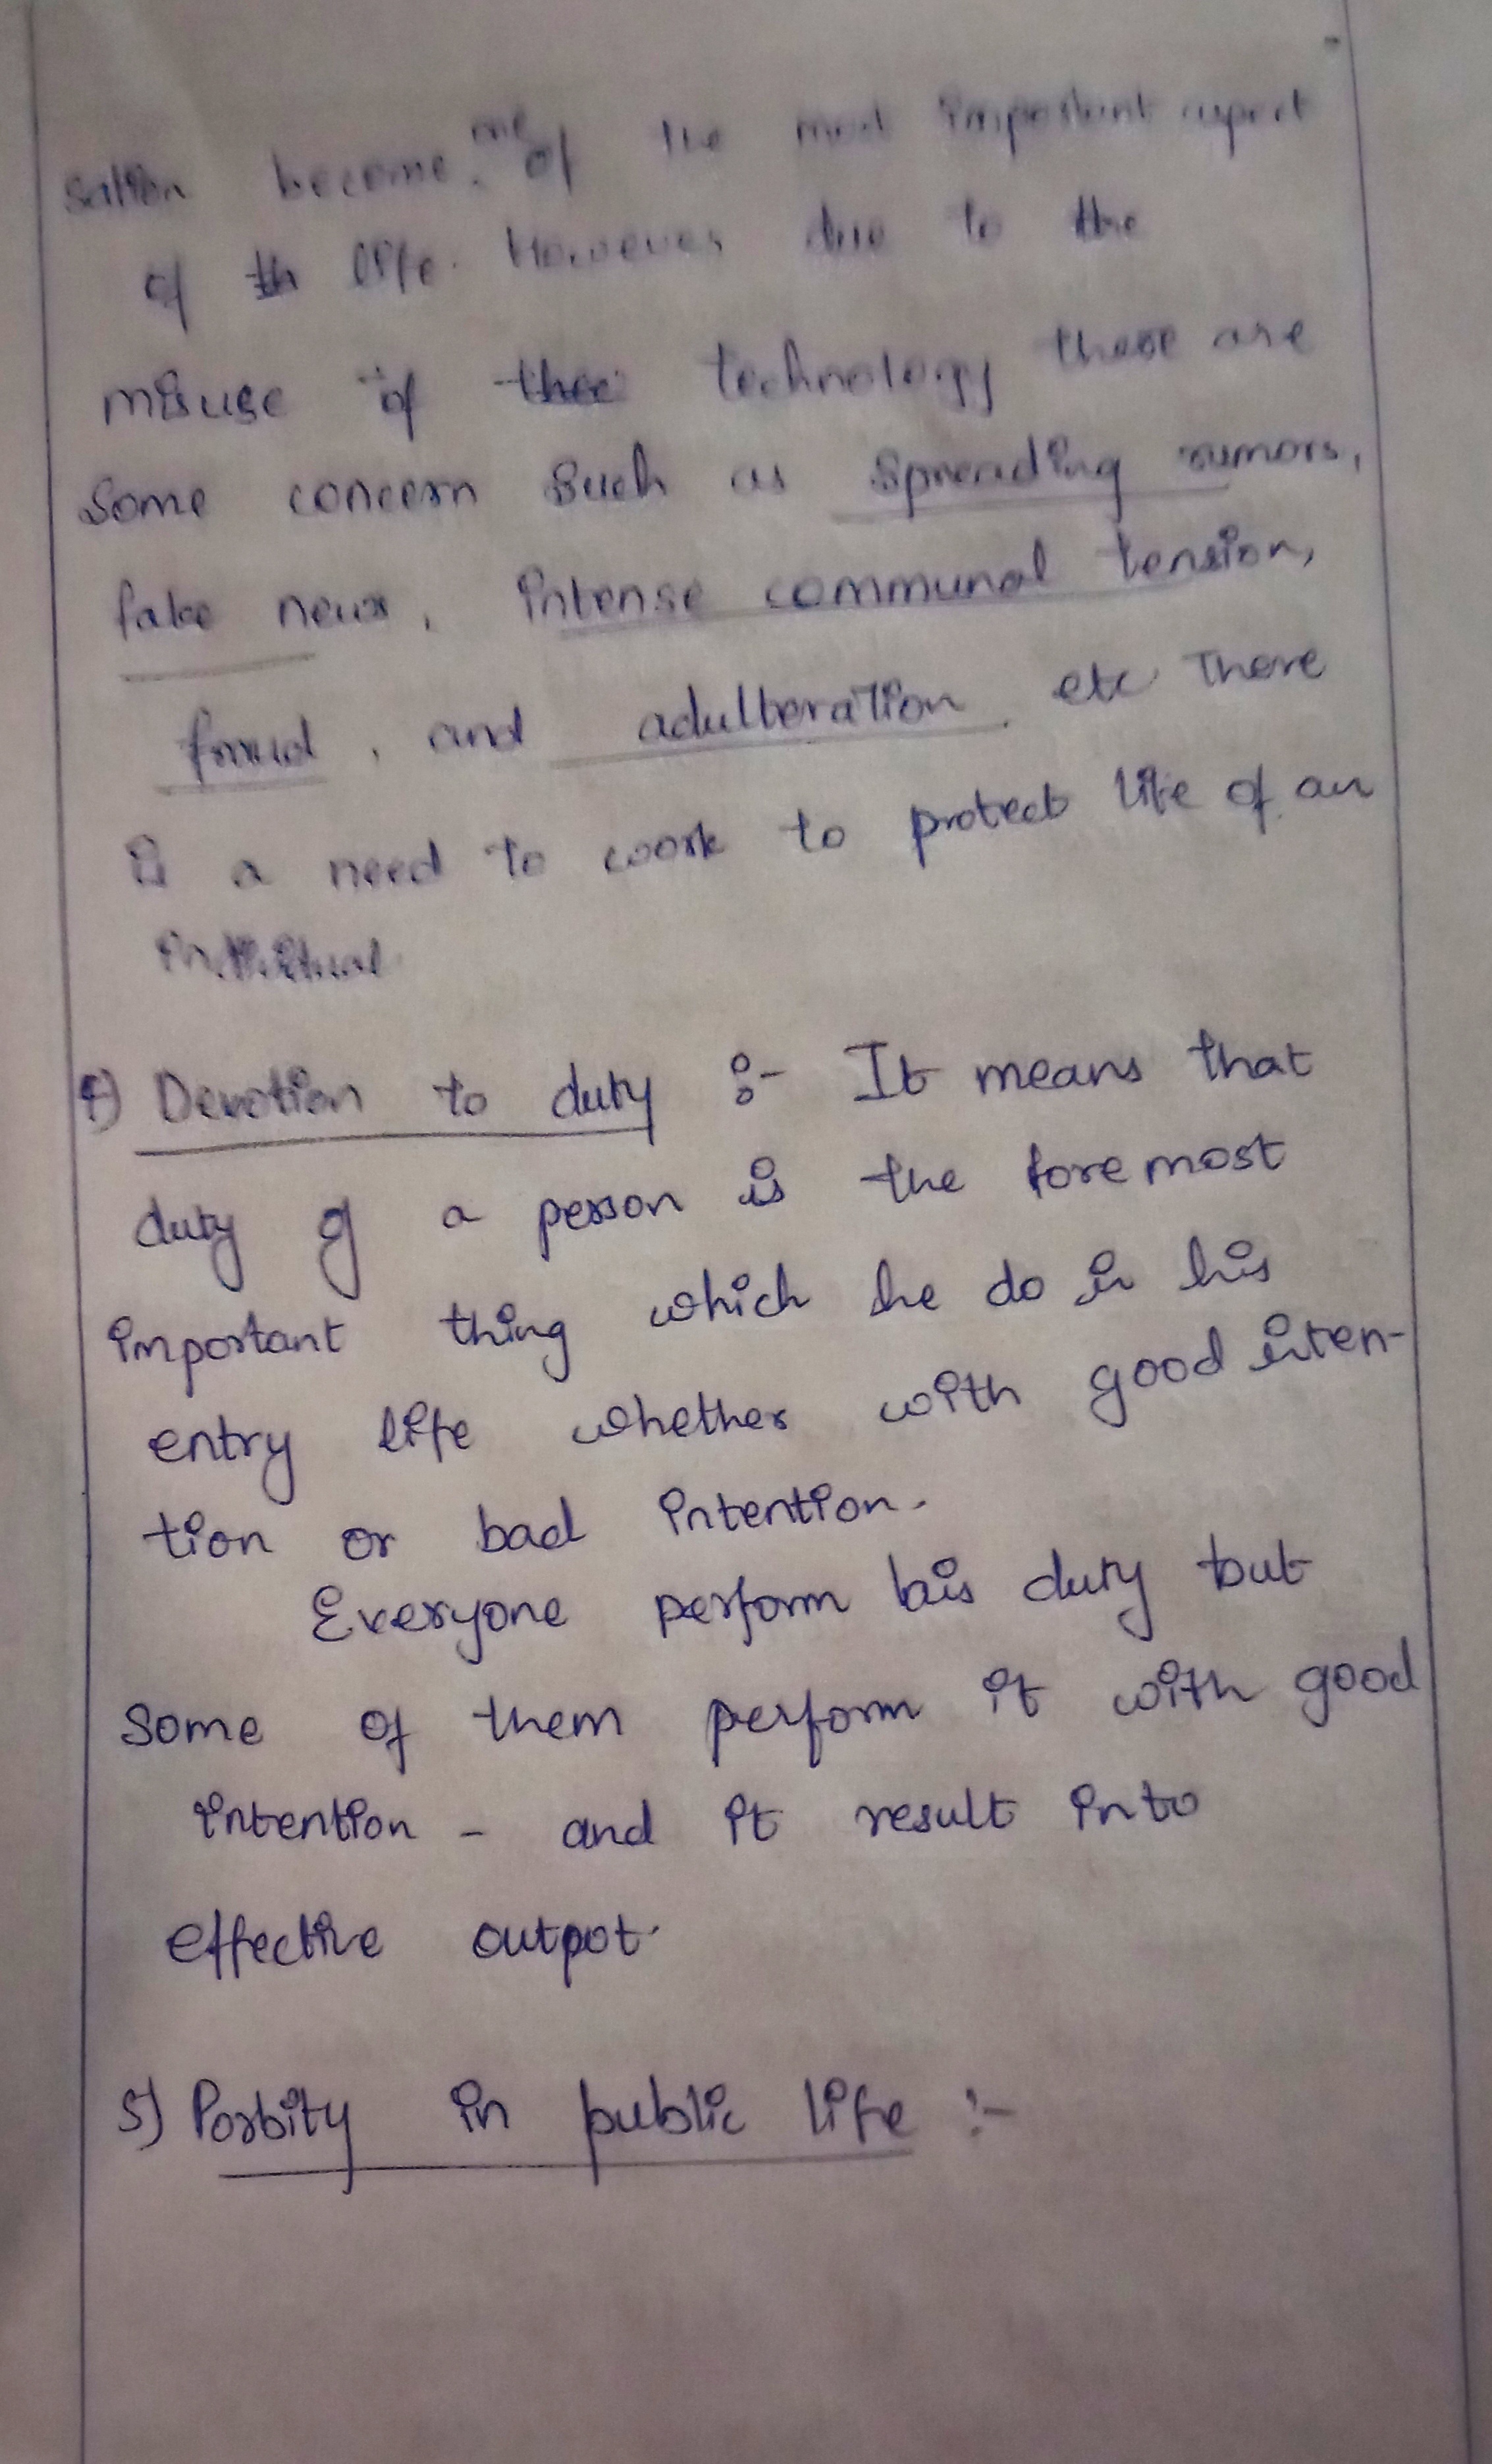 sation become one of the most important aspect
of th life. However due to the
misuse of thee technology these are
some concern such as spreading rumors,
fake news, intense communal tension,
fraud, and adulteration, etc There
is a need to work to protect life of an

4) Devotion to duty :- It means that
duty of a person is the foremost
important thing which he do in his
entry life whether with good inten-
tion or bad intention.
Everyone perform his duty but
some of them perform it with good
intention - and it result into
effective outpot.
5) Porbity in public life :-